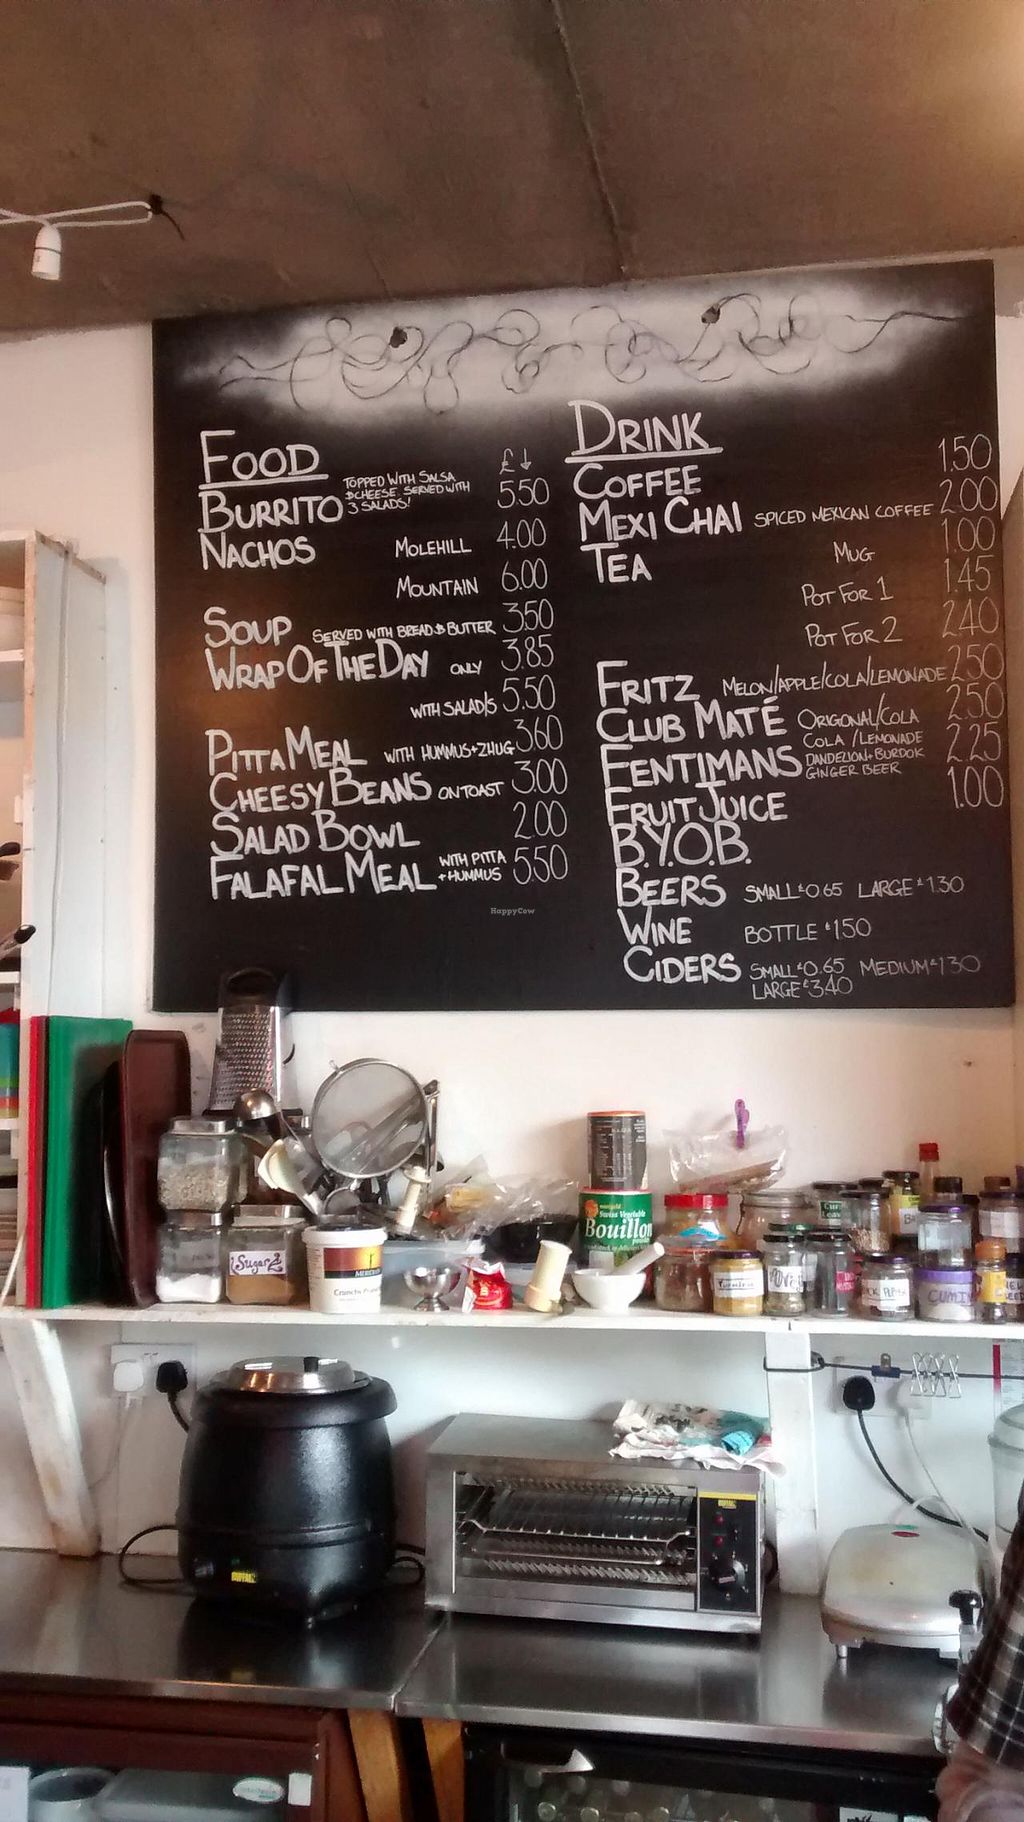 FOOD £↓
BURRITO TOPPED WITH SALSA & CHEESE SERVED WITH 3 SALADS! 5.50
NACHOS MOLEHILL 4.00
MOUNTAIN 6.00
SOUP SERVED WITH BREAD & BUTTER 3.50
WRAP OF THE DAY ONLY 3.85
WITH SALAD/S 5.50
PITTA MEAL WITH HUMMUS + ZHUG 3.60
CHEESY BEANS ON TOAST 3.00
SALAD BOWL 2.00
FALAFAL MEAL WITH PITTA + HUMMUS 5.50
DRINK
COFFEE 1.50
MEXI CHAI SPICED MEXICAN COFFEE 2.00
TEA MUG 1.00
POT FOR 1 1.45
POT FOR 2 2.40
FRITZ MELON/APPLE/COLA/LEMONADE 2.50
CLUB MATÉ ORIGONAL/COLA 2.50
FENTIMANS COLA/LEMONADE DANDELION + BURDOK GINGER BEER 2.25
FRUIT JUICE 1.00
B.Y.O.B.
BEERS SMALL £0.65 LARGE £1.30
WINE BOTTLE £1.50
CIDERS SMALL £0.65 MEDIUM £1.30
LARGE £3.40
HappyCow
Sugar
Swiss Vegetable
Bouillon
powder
MERIDIAN
TURMERIC
CUMIN
BUFFALO